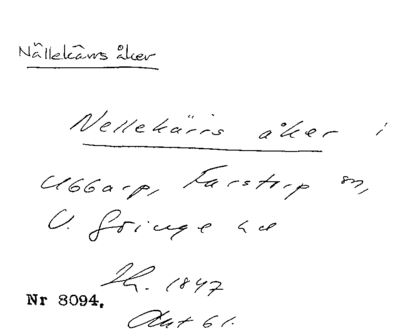 Nällekärrs åker
Nellekärrs åker i
Ubbarp, Farstorp sn,
V. Göinge hd
Lh. 1847
Nr 8094.
Akt 61.